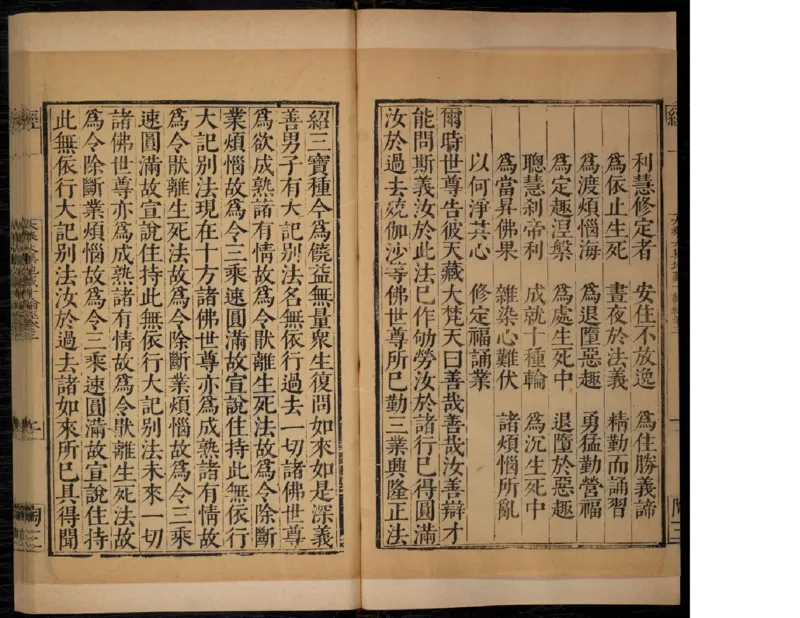 利慧修定者 安住不放逸 爲住勝義諦
爲依止生死 晝夜於法義 精勤而誦習
爲渡煩惱海 爲退墮惡趣 勇猛勤營福
爲定趣涅槃 爲處生死中 退墮於惡趣
聰慧刹帝利 成就十種輪 爲沉生死中
爲當昇佛果 雜染心難伏 諸煩惱所亂
以何淨其心 修定福誦業
爾時世尊告彼天藏大梵天曰善哉善哉汝善辯才
能問斯義汝於此法巳作劬勞汝於諸行巳得圓滿
汝於過去殑伽沙等佛世尊所巳勤三業興隆正法
紹三寶種今爲饒益無量衆生復問如來如是深義
善男子有大記别法名無依行過去一切諸佛世尊
爲欲成熟諸有情故爲令猒離生死法故爲令除斷
業煩惱故爲令三乘速圓滿故宣說住持此無依行
大記别法現在十方諸佛世尊亦爲成熟諸有情故
爲令猒離生死法故爲令除斷業煩惱故爲令三乘
速圓滿故宣說住持此無依行大記别法未來一切
諸佛世尊亦爲成熟諸有情故爲令猒離生死法故
爲令除斷業煩惱故爲令三乘速圓滿故宣說住持
此無依行大記别法汝於過去諸如來所巳具得聞